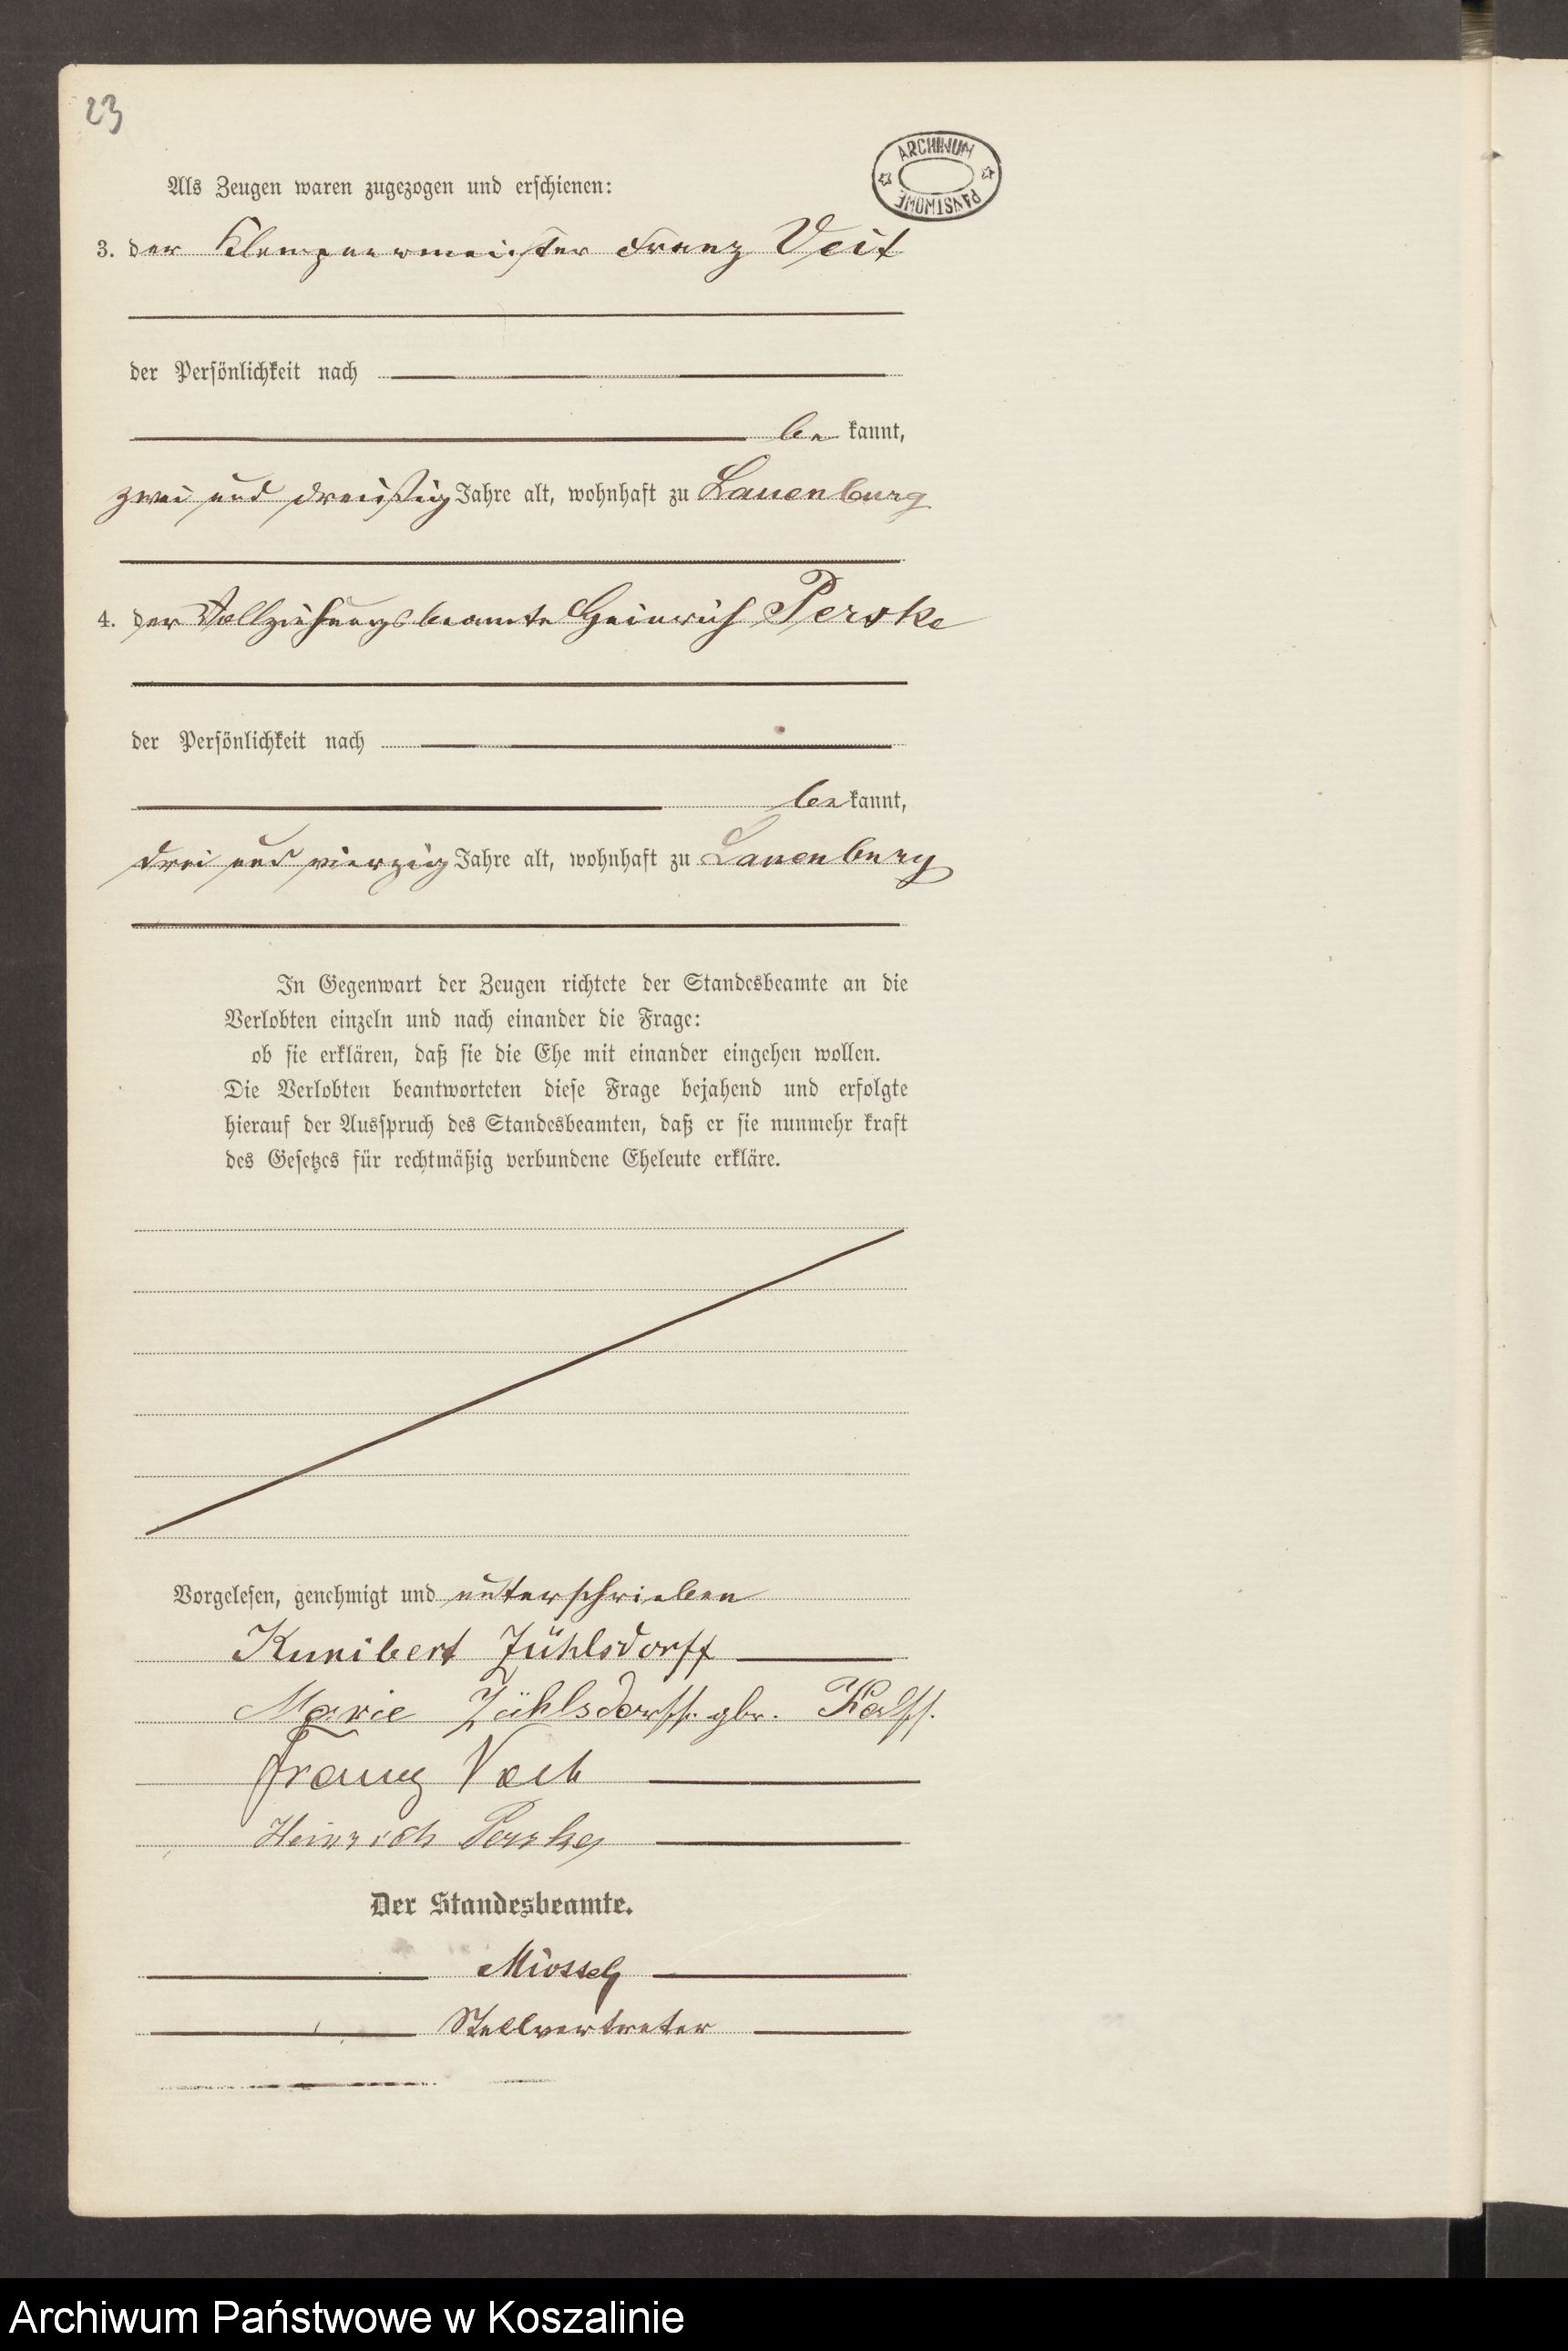 23
ARCHIWUM PAŃSTWOWE
Als Zeugen waren zugezogen und erschienen:
3. der Klempnermeister Franz Veit
der Persönlichkeit nach
be kannt,
zwei und dreißig Jahre alt, wohnhaft zu Lauenburg
4. der Vollziehungsbeamte Heinrich Perske
der Persönlichkeit nach
bekannt,
drei und vierzig Jahre alt, wohnhaft zu Lauenburg
In Gegenwart der Zeugen richtete der Standesbeamte an die
Verlobten einzeln und nach einander die Frage:
ob sie erklären, daß sie die Ehe mit einander eingehen wollen.
Die Verlobten beantworteten diese Frage bejahend und erfolgte
hierauf der Ausspruch des Standesbeamten, daß er sie nunmehr kraft
des Gesetzes für rechtmäßig verbundene Eheleute erkläre.
Vorgelesen, genehmigt und unterschrieben
Kunibert Zühlsdorff
Marie Zühlsdorff. gbr.
Franz Veit
Heinrich Perske
Der Standesbeamte.
Stellvertreter
Archiwum Państwowe w Koszalinie